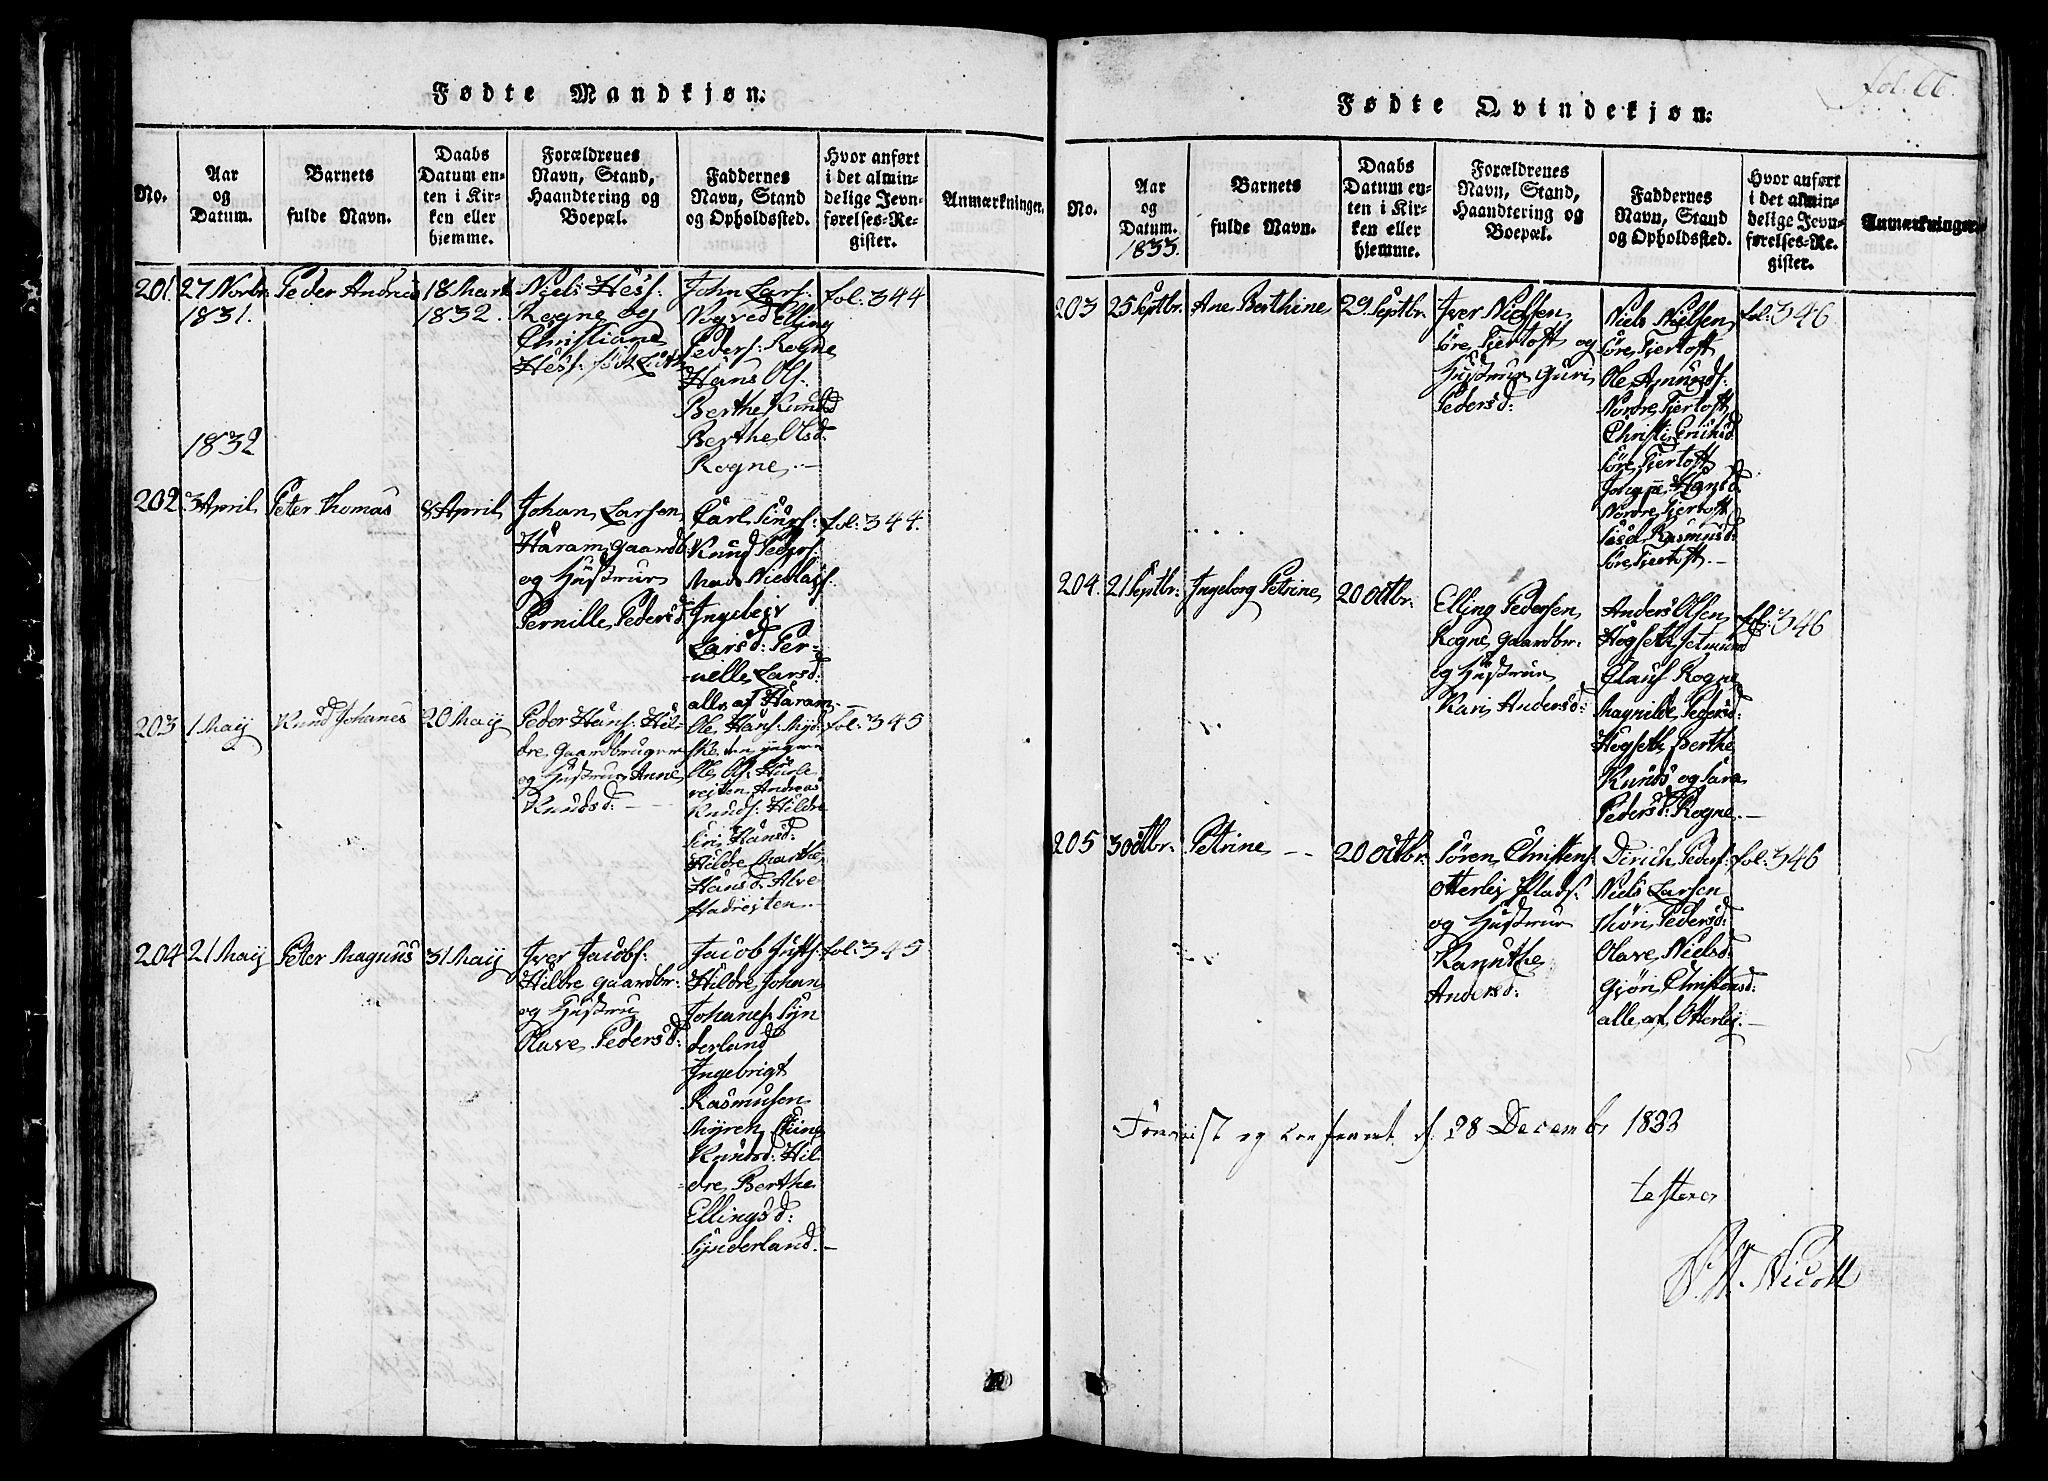 Fødte Mandkjøn.
No.
Aar
og
Datum.
Barnets
fulde Navn.
Daabs
Datum en-
ten i Kir-
ken eller
hjemme.
Forældrenes
Navn, Stand,
Haandtering og
Boepæl.
Faddernes
Navn, Stand
og Opholdssted.
Hvor anført
i det almin-
delige Jevn-
førelses-Re-
gister.
Anmærkninger.
201.
27 Novbr.
1831.
Peder Andreas
18 Mart
1832.
Niels Hess:
Rogne og
Christiane
Hess: født Lütz
John Lars:
Nogved Elling
Peders: Rogne
Hans Ols:
Berthe Knudsd
Berthe Olsd:
Rogne.
fol: 344
1832
202
3 April
Peter Thomas
8 April
Johan Larsen
Haram gaardb:
og Hustrue
Pernille Pedersd:
Carl
Knud Peders:
Mads Nicolais:
Ingeleiv
Larsd: Per-
nelle Larsd:
alle af Haram.
fol: 344.
203
1 Maij
Knud Johanes
20 Maij
Peder Hans: Hil-
dre gaardbruger
og Hustrue Anne
Knudsd:
Ole Hans:
Ole Ols:
Andreas
Knuds: Hildre
Siri Hansd:
Hildre Marthe
Hansd: Alve
fol: 345
204
21 Maij
Peter Magnus
31 Maij
Iver Jacobs:
Hildre gaardbr:
og Hustrue
Olave Pedersd:
Jacob
Hildre, Johan
Johanes: Syn
derland
Ingebrigt
Rasmusen
Myren,
Knudsd: Hil
dre, Berthe
Ellingsd:
Synderland.
fol: 345
fol. 66.
Fødte Qvindekjøn.
No.
Aar
og
Datum.
1833.
Barnets
fulde Navn.
Daabs
Datum en-
ten i Kir-
ken eller
hjemme.
Forældrenes
Navn, Stand,
Haandtering og
Boepæl.
Faddernes
Navn, Stand
og Opholdssted.
Hvor anført
i det almin-
delige Jevn-
førelses-Re-
gister.
Anmærkninger.
203
25 Septbr.
Ane Berthine
29 Septbr.
Iver Nielsen
Søre Fiertoft og
Hustrue Guri
Pedersd:
Niels Nielsen
Søre Fiertoft
Ole Amunds:
Nordre Fiertoft
Christi
Søre Fiertoft
Hansd:
Nordre Fiertoft
Rasmusd:
Søre Fiertoft.
fol: 346
204.
21 Septbr.
Ingeborg Petrine
20 Octbr:
Elling Pedersen
Rogne gaardbr.
og Hustrue
Kari Andersd:
Anders Olsen
Hogseth
Rogne
Magnilde Pedersd:
Hogseth Berthe
Knuds og Sara
Pedersd: Rogne.
fol: 346
205
3 Octbr:
Petrine
20 Octbr
Søren Christens:
Otterlei Plads:
og Hustrue
Kanuthe
Andersd:
Dirich Peders:
Niels Larsen
Pedersd:
Olave Nielsd:
Gjøri Christensd:
alle af Otterlei.
fol: 346
og 28 Decemb. 1833
testerer